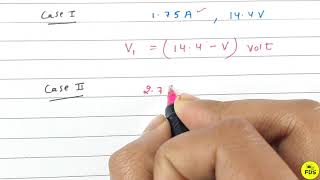 Case I 1.75A ✓, 14.4V
V₁ = (14.4 - V) volt
Case II 2.7
FDS